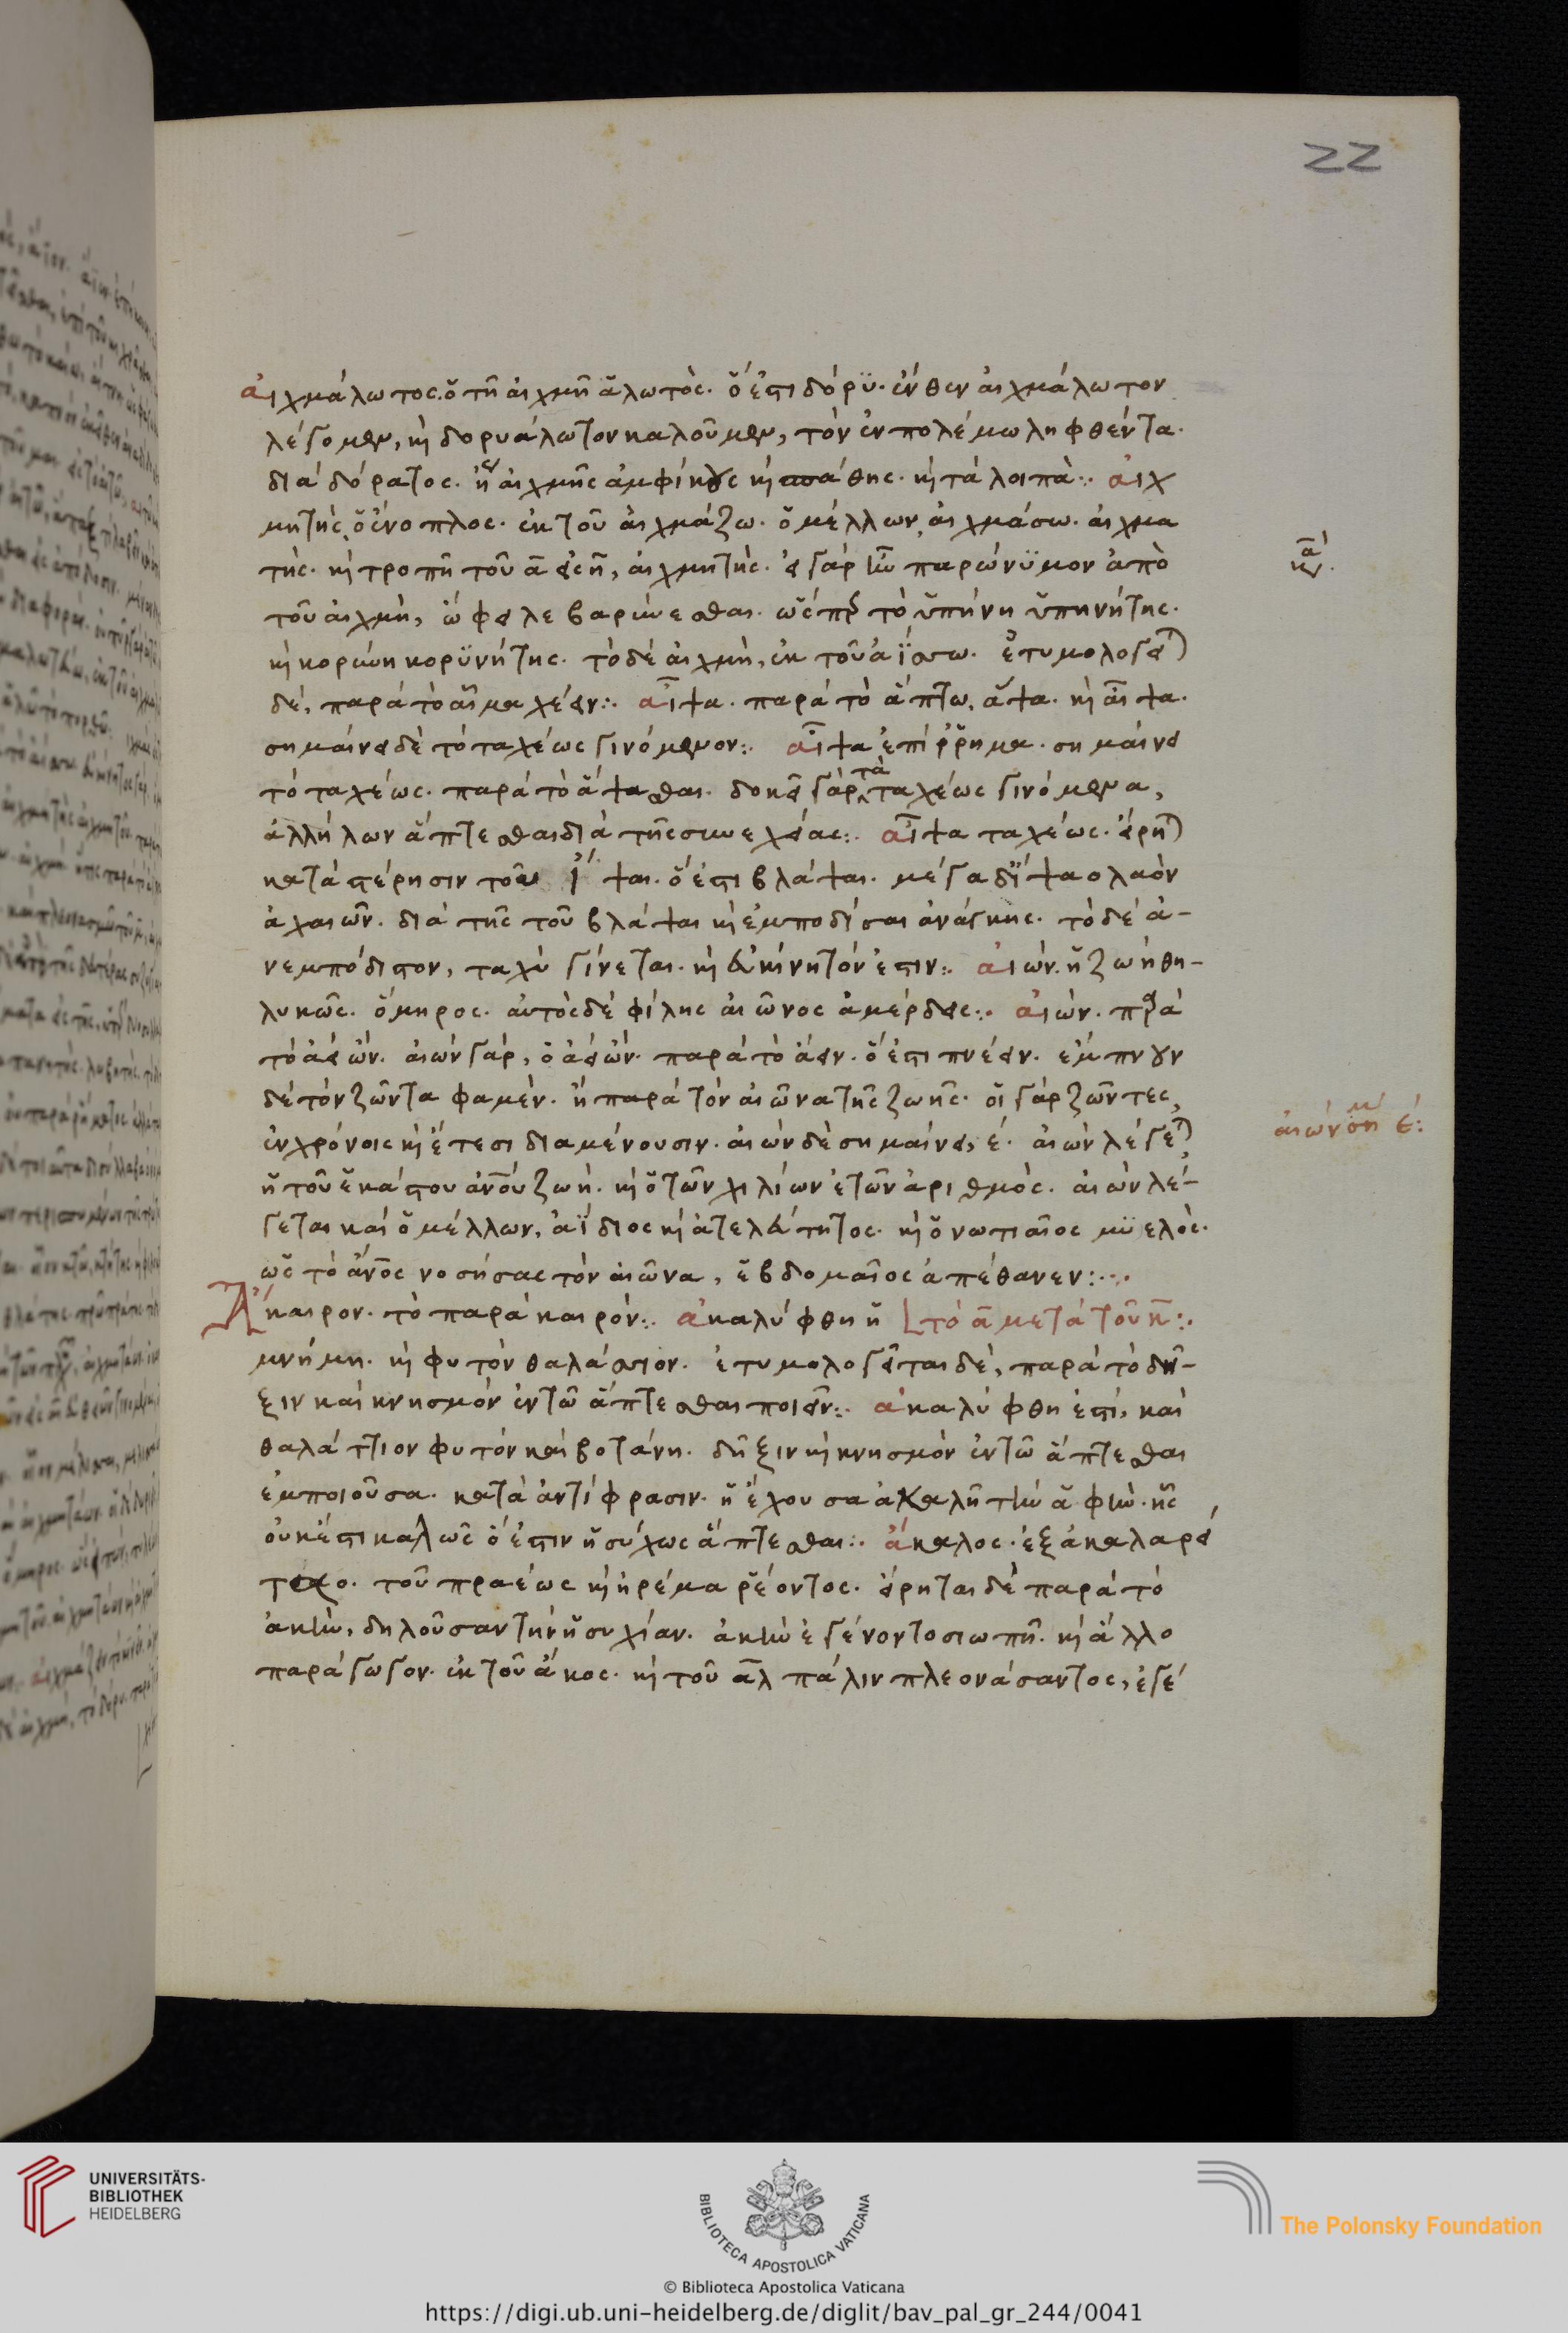 22
αἰχμάλωτος. ὁ τῆ αἰχμῆ ἁλωτὸς. ὅ ἐστι δόρϋ. ἔνθεν αἰχμάλωτον
λέγομεν, κ̀ δορυάλωτον καλοῦμεν, τὸν ἐν πολέμω ληφθέντα.
διὰ δόρατος. ἢ αἰχμῆς ἀμφίκους κ̀ σπάθης. κ̀ τὰ λοιπὰ:. αἰχ
μητὴς, ὁ ἔνοπλος. ἐκ τοῦ αἰχμάζω. ὁ μέλλων, αἰχμάσω. αἰχμα
τὴς. κ̀ τροπῆ τοῦ α̅ εἰς η̅, αἰχμητὴς. εἰ γὰρ ἦν παρώνϋμον ἀπὸ
τοῦ αἰχμὴ, ὤφειλε βαρύνεσθαι. ὥσπερ τὸ ὑπήνη ὑπηνήτης.
κ̀ κορύνη κορϋνήτης. τὸ δὲ αἰχμὴ, ἐκ τοῦ ἀΐσσω. ἐτυμολογεῖ)
δὲ, παρὰ τὸ αἷμα χέειν:. αἶψα. παρὰ τὸ ἅπτω, ἅψα. κ̀ αἶψα.
σημαίνει δὲ τὸ ταχέως γινόμενον:. αἶψα ἐπίρρημα. σημαίνει
τὸ ταχέως. παρὰ τὸ ἅψασθαι. δοκεῖ γὰρ τὰ ταχέως γινόμενα,
ἀλλήλων ἅπτεσθαι διὰ τῆς συνεχείας:. αἶψα ταχέως. εἴρη)
κατὰ στέρησιν τοῦ ἴψαι. ὅ ἐστι βλάψαι. μέγα δ' ἴψαο λαὸν
ἀχαιῶν. διὰ τῆς τοῦ βλάψαι κ̀ ἐμποδίσαι ἀνάγκης. τὸ δὲ ἀ-
νεμπόδιστον, ταχὺ γίνεται. κ̀ εὐκίνητόν ἐστιν:. αἰὼν. ἡ ζωὴ θη-
λυκῶς. ὅμηρος. αὐτὸς δὲ φίλης αἰῶνος ἀμέρδεις:. αἰὼν. παρὰ
τὸ ἀεὶ ὢν. αἰὼν γὰρ, ὁ ἀεὶ ὢν. παρὰ τὸ ἄειν. ὅ ἐστι πνέειν. ἔμπνουν
δὲ τὸν ζῶντα φαμὲν. ἢ παρὰ τὸν αἰῶνα τῆς ζωῆς. οἱ γὰρ ζῶντες,
ἐν χρόνοις κ̀ ἔτεσι διαμένουσιν. αἰὼν δὲ σημαίνει, έ. αἰὼν λέγε)
ἡ τοῦ ἑκάστου ἀνου ζωὴ. κ̀ ὁ τῶν χιλίων ἐτῶν ἀριθμὸς. αἰὼν λέ-
γεται καὶ ὁ μέλλων, ἀΐδιος κ̀ ἀτελεύτητος. κ̀ ὁ νωτιαῖος μϋελὸς.
ὡς τὸ ἄνος νοσήσας τὸν αἰῶνα, ἑβδομαῖος ἀπέθανεν:..
Ἄκαιρον. τὸ παρὰ καιρόν:. ἀκαλύφθη ἡ τὸ α̅ μετὰ τοῦ κ̅:.
μνήμη. κ̀ φυτὸν θαλάσσιον. ἐτυμολογεῖται δὲ, παρὰ τὸ δῆ-
ξιν καὶ κνησμὸν ἐν τῶ ἅπτεσθαι ποιεῖν:. ἀκαλύφθη ἐστὶ, καὶ
θαλάττιον φυτὸν καὶ βοτάνη. δῆξιν κ̀ κνησμὸν ἐν τῶ ἅπτεσθαι
ἐμποιοῦσα. κατὰ ἀντίφρασιν. ἡ ἔχουσα ἀκαλῆ τὴν ἁφὴν. ἧς
οὐκ ἔστι καλῶς ὅ ἐστιν ἡσύχως ἅπτεσθαι:. ἄκαλος. ἐξ ἀκαλαρεί
ταο. τοῦ πραέως κ̀ ἠρέμα ῥέοντος. εἴρηται δὲ παρὰ τὸ
ἀκὴν, δηλοῦσαν τὴν ἡσυχίαν. ἀκὴν ἐγένοντο σιωπῆ. κ̀ ἄλλο
παράγωγον. ἐκ τοῦ ἄκος. κ̀ τοῦ α̅λ πάλιν πλεονάσαντος, ἐγέ
αἰών ση έ:
UNIVERSITÄTS-
BIBLIOTHEK
HEIDELBERG
BIBLIOTECA APOSTOLICA VATICANA
The Polonsky Foundation
© Biblioteca Apostolica Vaticana
https://digi.ub.uni-heidelberg.de/diglit/bav_pal_gr_244/0041